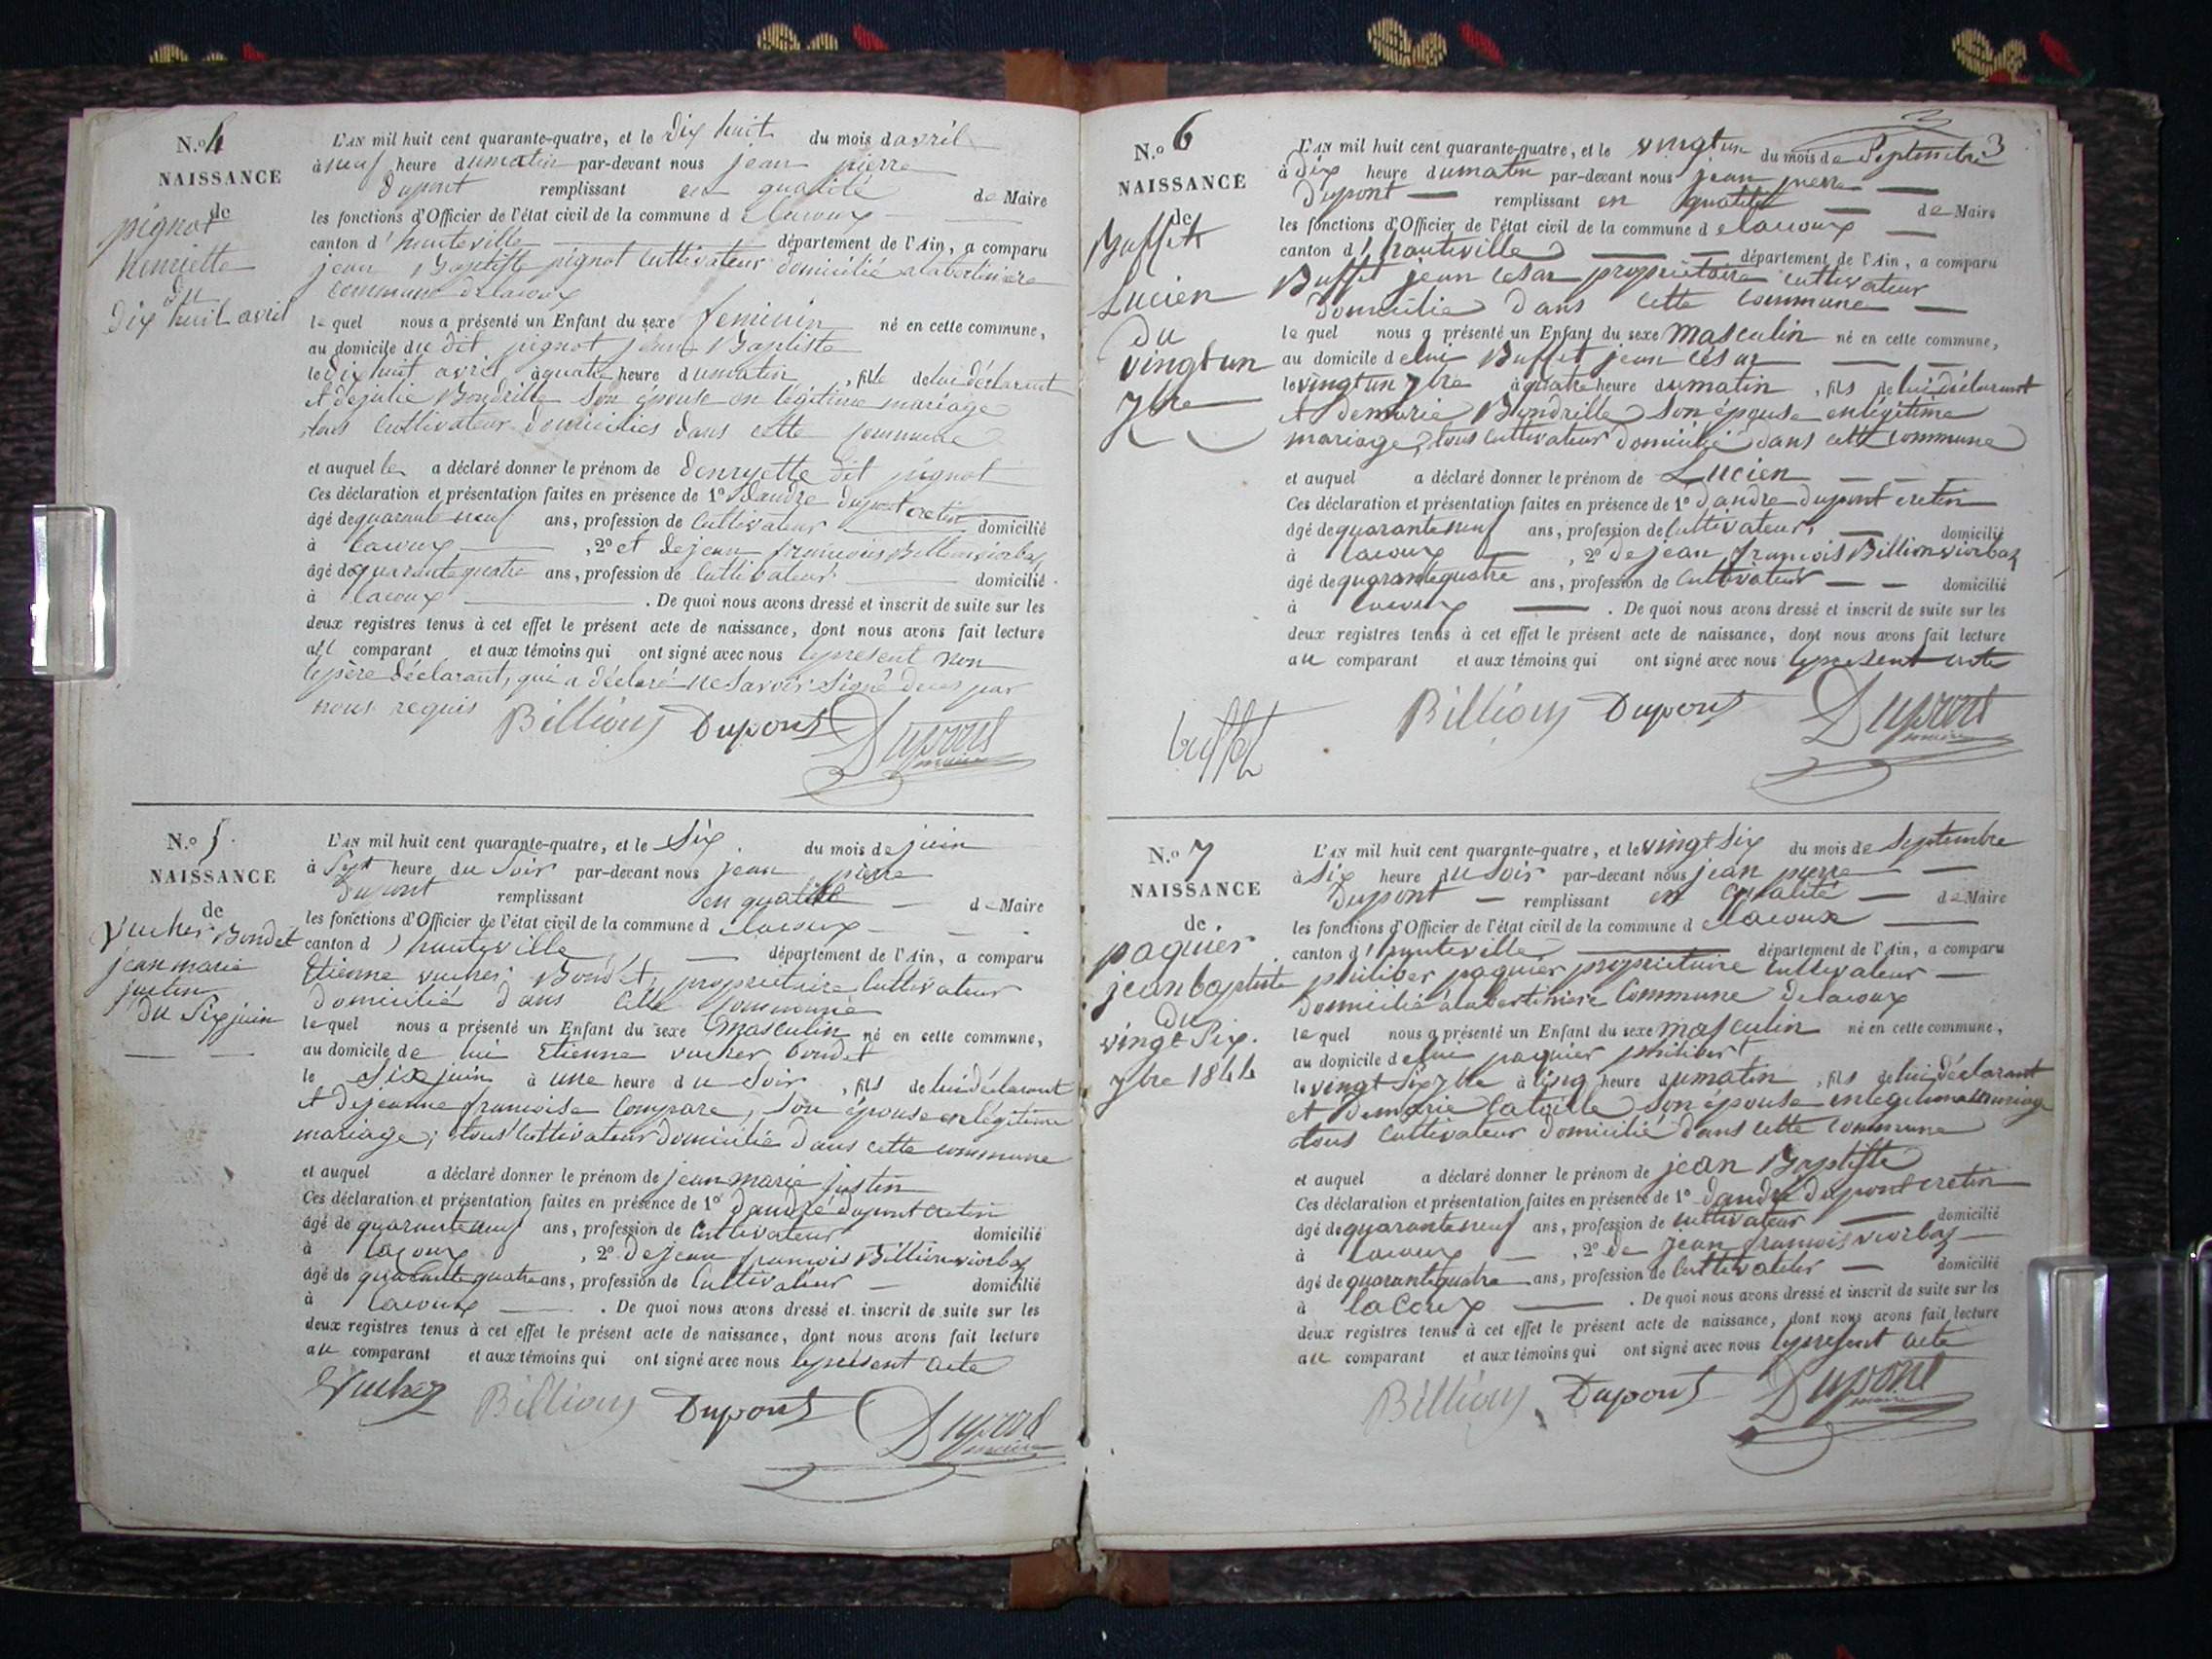 N.o 4
NAISSANCE
de
pignot
henriette
du
Dix huit avril
L'AN mil huit cent quarante-quatre, et le Dix huit du mois d avril
à neuf heure du matin par-devant nous jean pierre
Dupont remplissant en qualité de Maire
les fonctions d'Officier de l'état civil de la commune d elacoux
canton d' hauteville département de l'Ain, a comparu
jean Baptiste pignot Cultivateur domicilié alabertinière
commune delacoux
le quel nous a présenté un Enfant du sexe feminin né en cette commune,
au domicile du dit pignot jean Baptiste
le dix huit avril à quatre heure du matin, fille de lui déclarant
et de julie Bondrille Son épouse en légitime mariage
tous Cultivateur domiciliés dans cette commune
et auquel le a déclaré donner le prénom de henryette dit pignot
Ces déclaration et présentation faites en présence de 1o d'andre dupont cretin
âgé de quarante neuf ans, profession de Cultivateur domicilié
à lacoux , 2o et de jean françois Billion viorbaz
âgé de quarante quatre ans, profession de Cultivateur domicilié
à lacoux . De quoi nous avons dressé et inscrit de suite sur les
deux registres tenus à cet effet le présent acte de naissance, dont nous avons fait lecture
au comparant et aux témoins qui ont signé avec nous le présent non
le père déclarant, qui a déclaré ne Savoir Signé de ces par
nous requis Billion Dupont Dupont
maire
N.o 5
NAISSANCE
de
Vucher Bondet
jean marie
justin
du Six juin
L'AN mil huit cent quarante-quatre, et le Six du mois de juin
à Sept heure du Soir par-devant nous jean pierre
Dupont remplissant en qualité de Maire
les fonctions d'Officier de l'état civil de la commune d elacoux
canton d' hauteville département de l'Ain, a comparu
Etienne vucher Bondet, propriétaire Cultivateur
domicilié dans cette Commune
le quel nous a présenté un Enfant du sexe Masculin né en cette commune,
au domicile de lui Etienne vucher bondet
le Six juin à une heure du Soir, fils de lui déclarant
et de jeanne françoise Compare, Son épouse en légitime
mariage, tous Cultivateur domicilié dans cette commune
et auquel a déclaré donner le prénom de jean marie justin
Ces déclaration et présentation faites en présence de 1o d'andre dupont cretin
âgé de quarante neuf ans, profession de Cultivateur domicilié
à lacoux , 2o de jean françois Billion viorbaz
âgé de quarante quatre ans, profession de Cultivateur domicilié
à lacoux . De quoi nous avons dressé et inscrit de suite sur les
deux registres tenus à cet effet le présent acte de naissance, dont nous avons fait lecture
au comparant et aux témoins qui ont signé avec nous le présent acte
Vucher Billion Dupont Dupont
maire
3
N.o 6
NAISSANCE
de
Buffet
Lucien
Du
vingt un
7bre
L'AN mil huit cent quarante-quatre, et le vingt un du mois de Septembre
à dix heure du matin par-devant nous jean pierre
Dupont remplissant en qualité de Maire
les fonctions d'Officier de l'état civil de la commune d elacoux
canton d' hauteville département de l'Ain, a comparu
Buffet jean César propriétaire cultivateur
domicilié dans cette commune
le quel nous a présenté un Enfant du sexe Masculin né en cette commune,
au domicile de lui Buffet jean césar
le vingt un 7bre à quatre heure du matin, fils de lui déclarant
et de marie Bondrille Son épouse en légitime
mariage, tous Cultivateur domicilié dans cette commune
et auquel a déclaré donner le prénom de Lucien
Ces déclaration et présentation faites en présence de 1o d'andre dupont cretin
âgé de quarante neuf ans, profession de Cultivateur domicilié
à lacoux , 2o de jean françois Billion viorbaz
âgé de quarante quatre ans, profession de Cultivateur domicilié
à lacoux . De quoi nous avons dressé et inscrit de suite sur les
deux registres tenus à cet effet le présent acte de naissance, dont nous avons fait lecture
au comparant et aux témoins qui ont signé avec nous le présent acte
buffet Billion Dupont Dupont
maire
N.o 7
NAISSANCE
de
paquier
jean baptiste
du
vingt Six
7bre 1844
L'AN mil huit cent quarante-quatre, et le vingt Six du mois de Septembre
à Six heure du Soir par-devant nous jean pierre
Dupont remplissant en qualité de Maire
les fonctions d'Officier de l'état civil de la commune d elacoux
canton d' hauteville département de l'Ain, a comparu
philiber paquier propriétaire Cultivateur
domicilié alabertinière Commune delacoux
le quel nous a présenté un Enfant du sexe masculin né en cette commune,
au domicile de lui paquier philibert
le vingt Six 7bre à cinq heure du matin, fils de lui déclarant
et de marie Son épouse en legitime mariage
tous Cultivateur domicilié dans cette commune
et auquel a déclaré donner le prénom de jean Baptiste
Ces déclaration et présentation faites en présence de 1o d'andre dupont cretin
âgé de quarante neuf ans, profession de cultivateur domicilié
à lacoux , 2o de jean françois viorbaz
âgé de quarante quatre ans, profession de Cultivateur domicilié
à lacoux . De quoi nous avons dressé et inscrit de suite sur les
deux registres tenus à cet effet le présent acte de naissance, dont nous avons fait lecture
au comparant et aux témoins qui ont signé avec nous le présent acte
Billion Dupont Dupont
maire